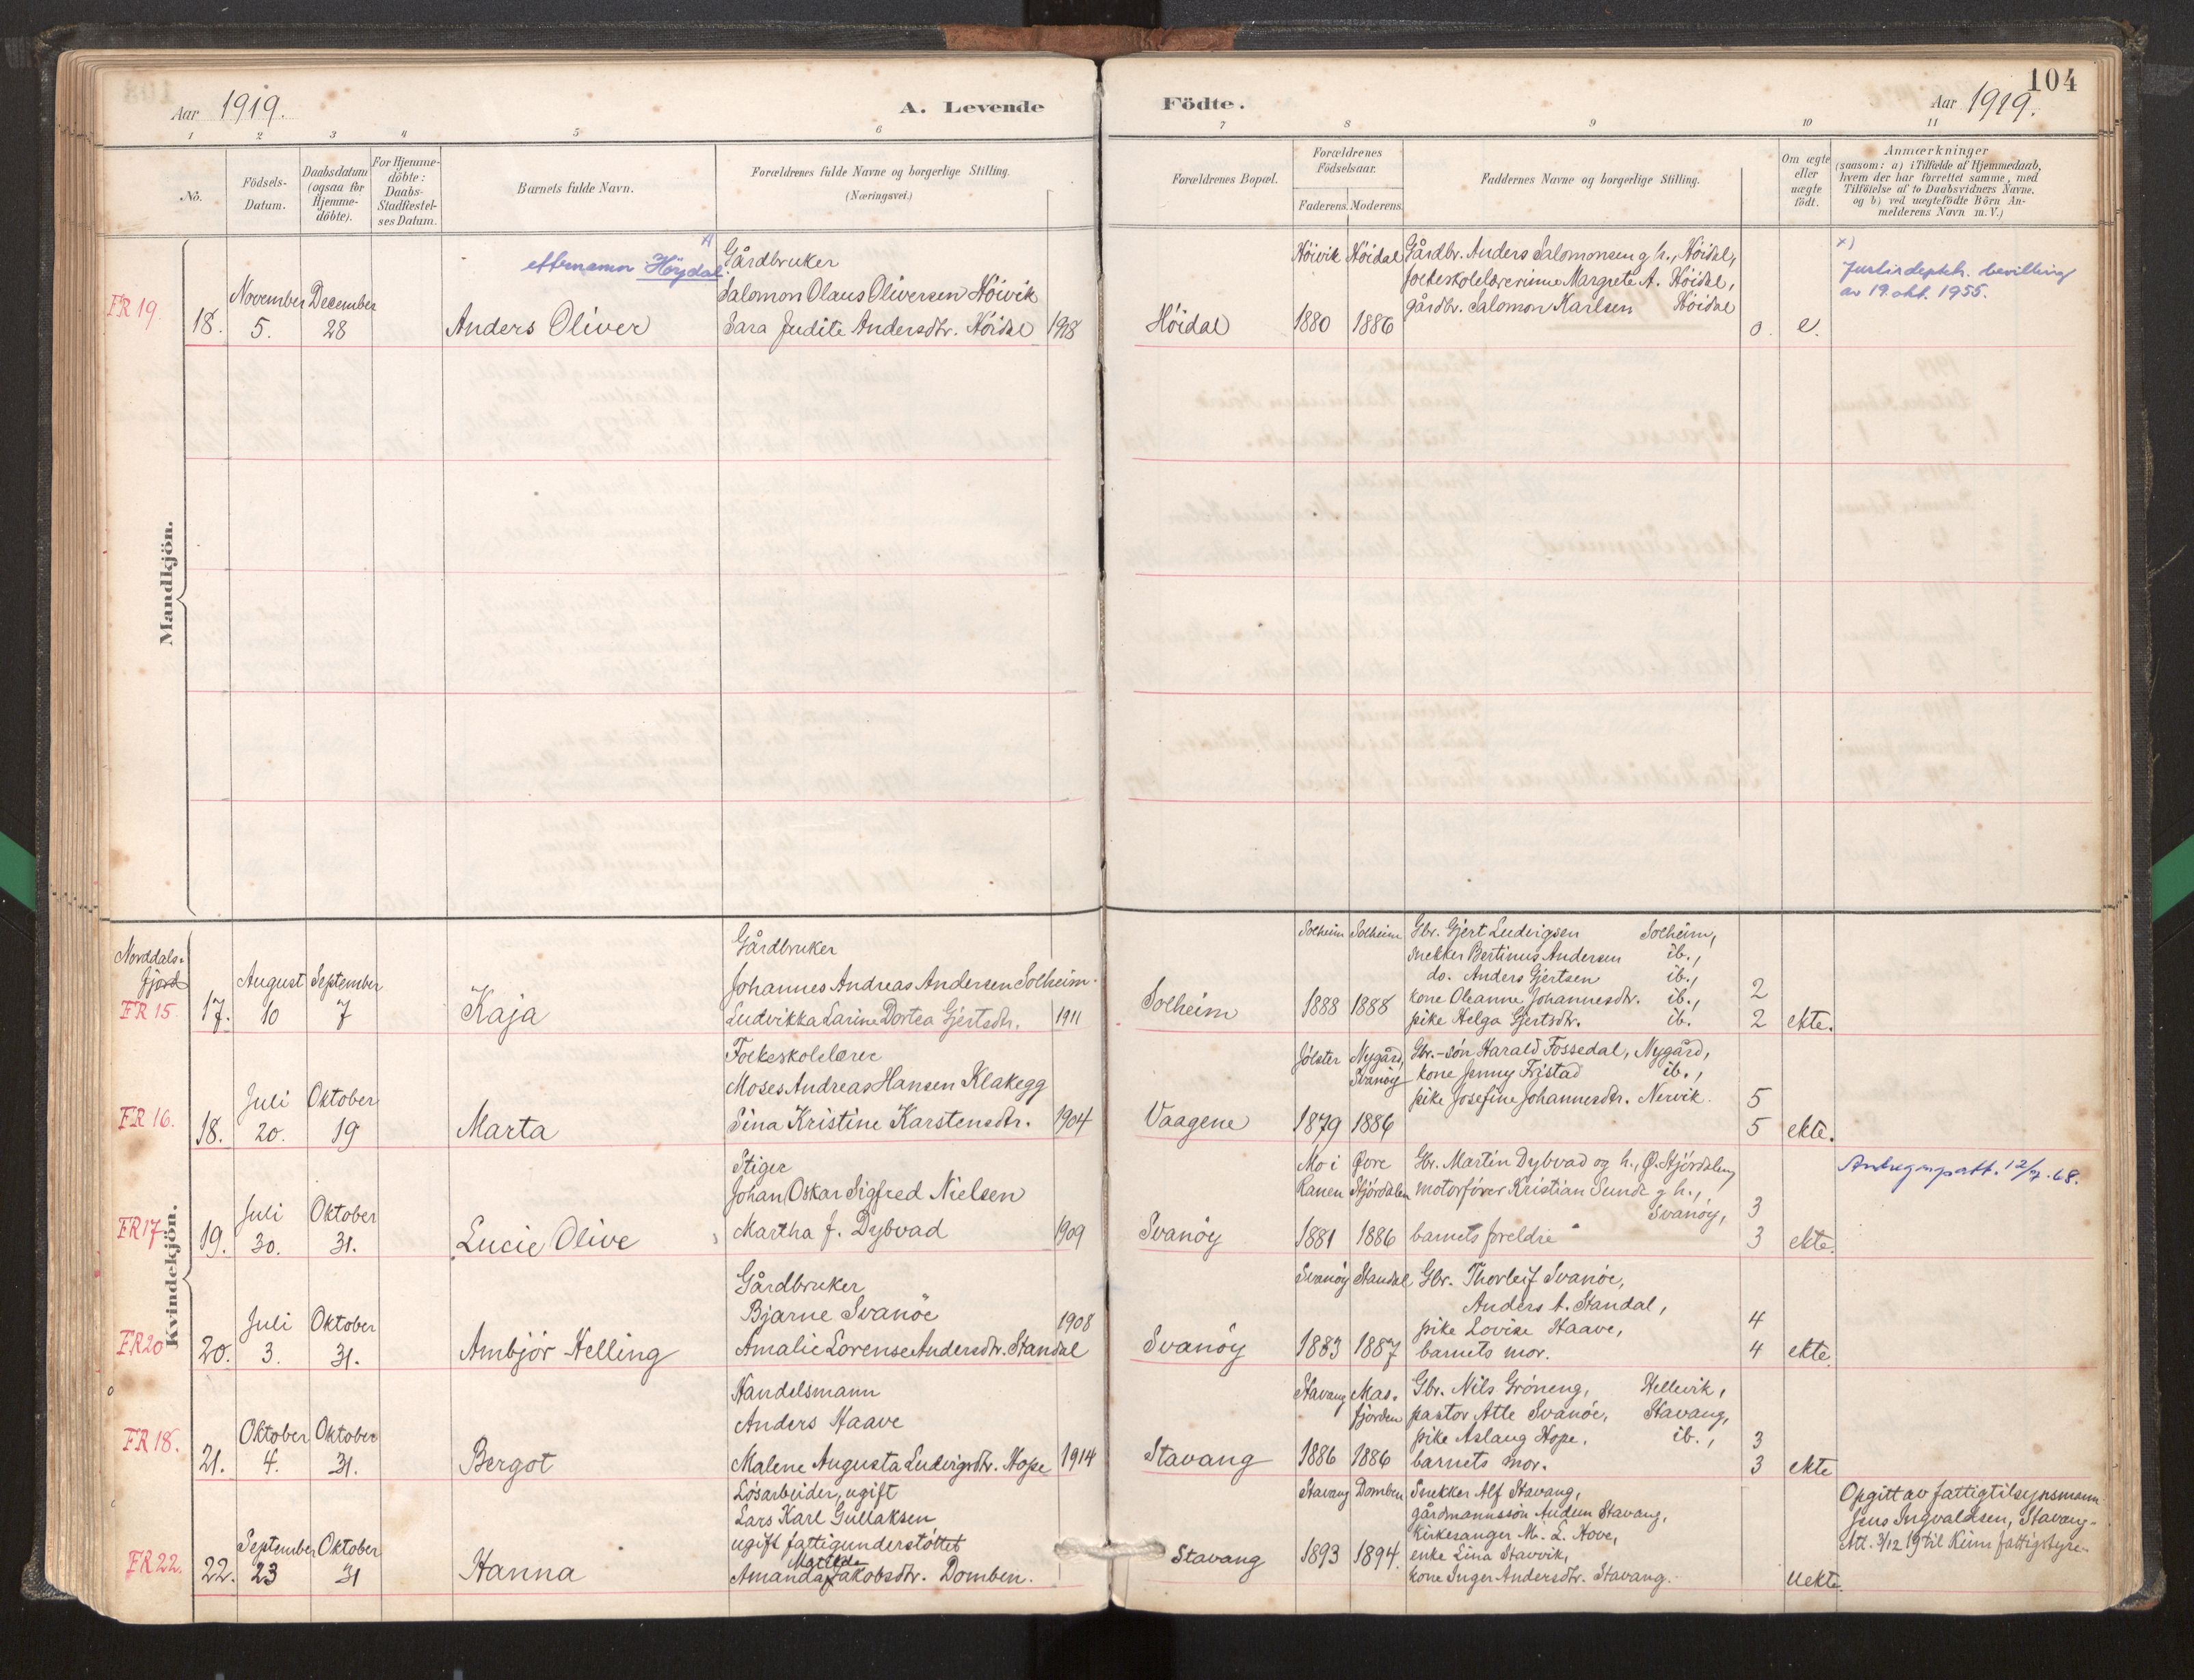 104
Aar 1919.
A. Levende
Födte.
Aar 1919.
1 2 3 4 5 6 7 8 9 10 11
No.
Födsels-
Datum.
Daabsdatum
(ogsaa for
Hjemme-
döbte).
For Hjemme-
döbte:
Daabs-
Stadfæstel-
ses Datum.
Barnets fulde Navn.
Forældrenes fulde Navne og borgerlige Stilling.
(Næringsvei.)
Forældrenes Bopæl.
Forældrenes
Födselsaar.
Faderens. Moderens.
Faddernes Navne og borgerlige Stilling.
Om ægte
eller
uægte
födt.
Anmærkninger
(saasom: a) i Tilfælde af Hjemmedaab,
hvem der har forrettet samme, med
Tilföielse af to Daabsvidners Navne.
og b) ved uægtefödte Börn An-
melderens Navn m. V.)
Mandkjön.
FR 19.
18.
November
5.
December
28
x)
etternamn Höydal
Anders Oliver
Gårdbruker
Salomon Olaus Oliversen Höivik
Sara Judite Andersdtr. Höidal
1918
Höidal
Höivik
1880
Höidal
1886
Gårdbr. Anders Salomonsen g h., Höidal,
folkeskolelærerinne Margrete A. Höidal,
gårdbr. Salomon Karlsen Höidal
0.
e.
x)
Justisdeptch. bevilling
av 19. okt. 1955.
Kvindekjön.
Norddals-
fjord
FR 15
17.
August
10
September
7
Kaja
Gårdbruker
Johannes Andreas Andersen Solheim.
Ludvikka Larine Dortea Gjertsdtr.
1911
Solheim
Solheim
1888
Solheim
1888
Gbr. Gjert Ludvigsen Solheim,
snekker Bertinus Andersen ib.,
do. Anders Gjertsen ib.,
kone Oleanne Johannesdtr. ib.,
pike Helga Gjertsdtr. ib.
2
2
ekte.
FR 16.
18.
Juli
20.
Oktober
19
Marta
Folkeskolelærer
Moses Andreas Hansen Klakegg
Sina Kristine Karstensdtr.
1904
Vaagene
Jölster
1879
Nygård,
Svanöy
1886
Gbr.-sön Harald Fossedal, Nygård,
kone Jenny Fristad ib.,
pike Josefine Johannesdtr. Nervik.
5
5
ekte.
FR 17
19.
Juli
30.
Oktober
31.
Lucie Olive
Stiger
Johan Oskar Sigfred Nielsen
Martha J. Dybvad
1909
Svanöy
Mo i
Ranen
1881
Övre
Stjördalen
1886
Gbr. Martin Dybvad og h., Ö. Stjördalen,
motorförer Kristian Sunde g h.,
Svanöy,
barnets foreldre
3
3
ekte.
12/7.68.
FR 20
20.
Juli
3.
Oktober
31.
Ambjör Helling
Gårdbruker
Bjarne Svanöe
Amalie Lorense Andersdtr. Standal
1908
Svanöy
Svanöy
1883
Standal
1887
Gbr. Thorleif Svanöe,
Anders A. Standal,
pike Lovise Haave,
barnets mor.
4
4
ekte.
FR 18.
21.
Oktober
4.
Oktober
31.
Bergot
Handelsmann
Anders Haave
Malene Augusta Ludvigsdtr. Hope
1914
Stavang
Stavang
1886
Mas-
fjorden
1886
Gbr. Nils Gröneng, Hellevik,
pastor Atle Svanöe, Stavang,
pike Aslaug Hope, ib.,
barnets mor.
3
3
ekte
FR 22.
22.
September
23
Oktober
31
Hanna
Lösarbeider, ugift
Lars Karl Gullaksen
ugift fattigunderstöttet
Matilde
Amanda Jakobsdtr. Domben.
Stavang
Stavang
1893
Domben
1894.
Snekker Alf Stavang,
gårdmannssön Audun Stavang,
kirkesanger M. L. Hove,
enke Lina Stavvik,
kone Inger Andersdtr. Stavang.
Uekte.
Opgitt av fattigtilsynsmann
Jens Ingvaldsen, Stavang.
Att. 3/12 19 til Kinn fattigstyre.